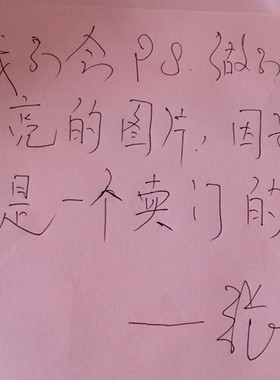 我不会PS.做不
亮的图片,因
是一个卖门的
——张